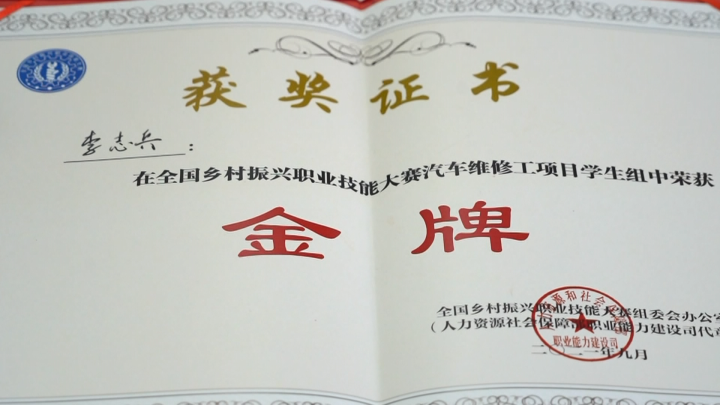 获奖证书
李志兵：
在全国乡村振兴职业技能大赛汽车维修工项目学生组中荣获
金牌
全国乡村振兴职业技能大赛组委会办公室
（人力资源社会保障部职业能力建设司代
职业能力建设司
二〇二一年九月